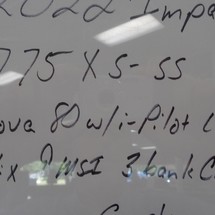 2022 Impa
775 X S- SS
ova 80 w/i-Pilot L
ix 9 MSI 3 bank C